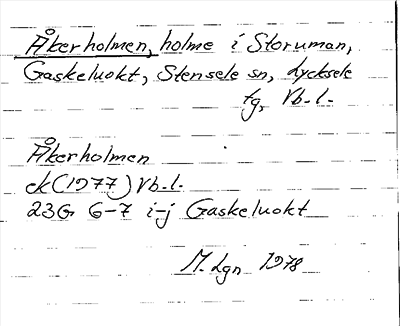 Åkerholmen, holme i Storuman,
Gaskeluokt, Stensele sn, Lycksele
tg, Vb. l.
Åkerholmen
ek (1977) Vb. l.
23G 6-7 i-j Gaskeluokt
M. Lgn 1978